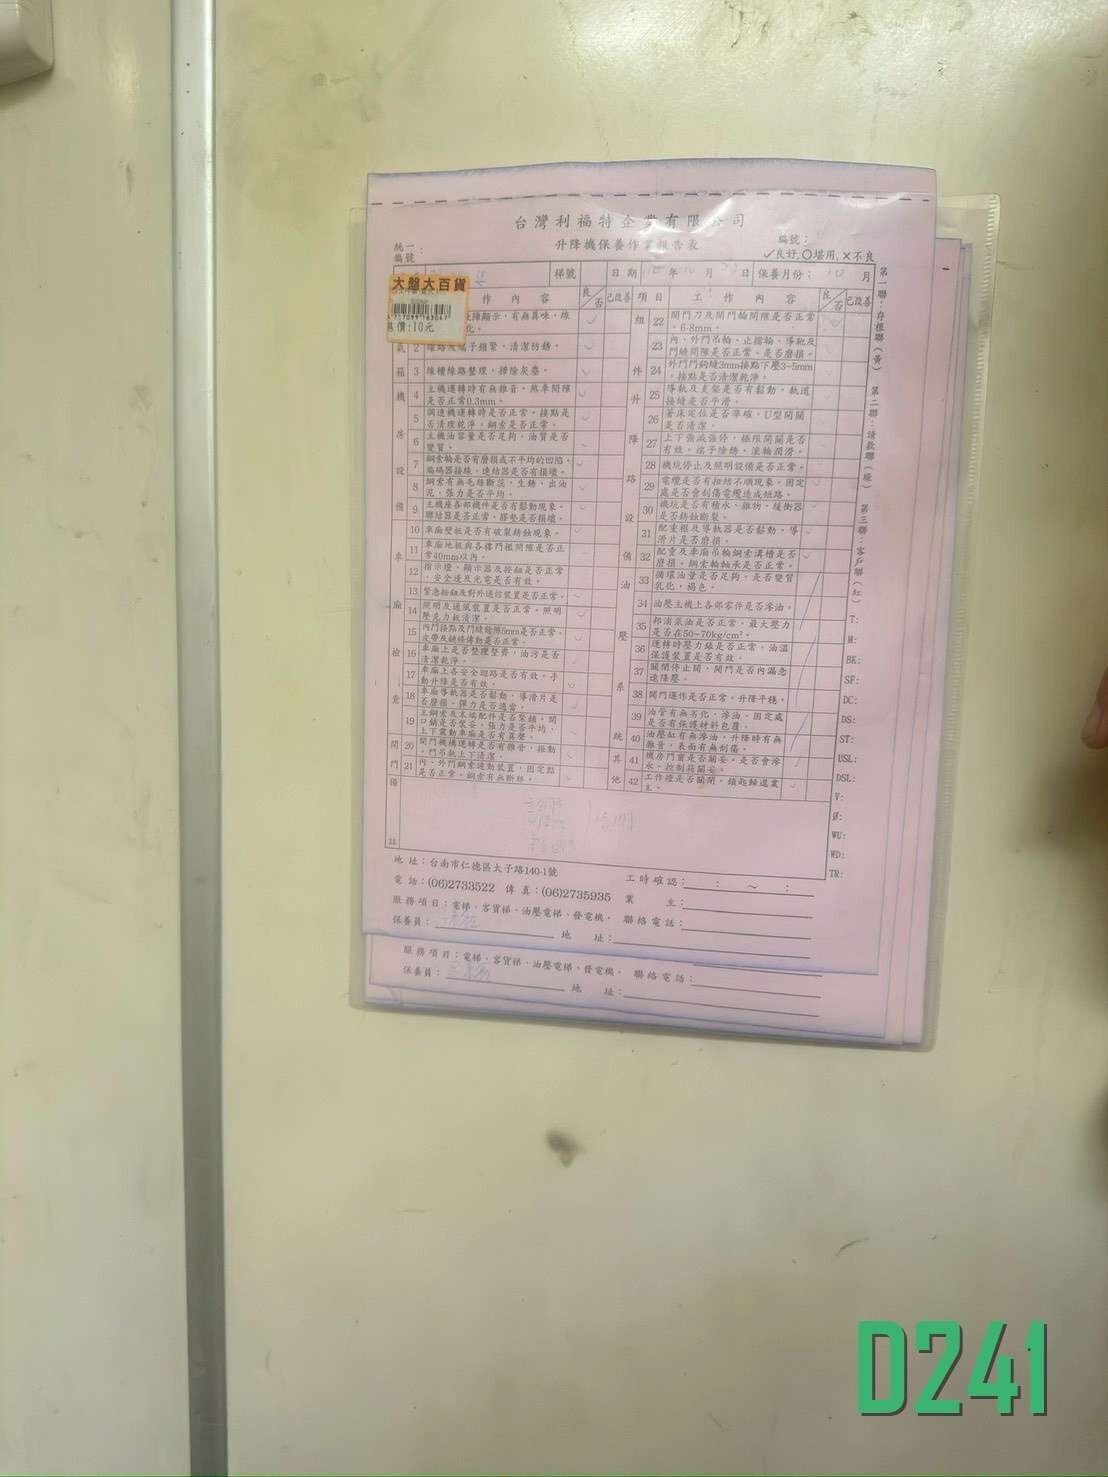 台灣利福特企業有限公司
升降機保養作業報告表
統一編號:
編號:
✓良好,○堪用,✕不良
梯號
日期 年 10 月 日
保養月份: 10 月
大盤大百貨
4717099183047
價:10元
作內容 良否 已改善 項目 工作內容 良否 已改善
2 清潔防銹。
3 線槽線路整理,掃除灰塵。
機房設備
4 主機運轉時有無雜音,煞車間隙是否正常0.3mm。
5 調速機運轉時是否正常,接點是否清理乾淨,鋼索是否正常。
6 主機油容量是否足夠,油質是否變質。
7 鋼索輪是否有磨損或不平均的凹陷,編碼器接線,連結器是否有損壞。
8 鋼索有無毛絲斷蕊,生銹、出油泥,張力是否平均。
9 主機座各部機件是否有鬆動現象,聯結器是否正常,膠墊是否損壞。
車廂檢查
10 車廂壁板是否有破裂銹蝕現象。
11 車廂地板與各樓門檻間隙是否正常40mm以內。
12 指示燈、顯示器及按鈕是否正常,安全邊及光電是否有效。
13 緊急按鈕及對外通信裝置是否正常。
14 照明及通風裝置是否正常,照明壓克力板清潔。
15 內門接點及門縫餘隙5mm是否正常,皮帶及鏈條傳動是否正常。
16 車廂上是否整理整齊,油污是否清潔乾淨。
17 車廂上各安全迴路是否有效,手動升降是否有效。
18 車廂導軌器是否鬆動,導滑片是否磨損,彈力是否適當。
19 主鋼索及末端配件是否緊損,開口銷是否裝妥,張力是否平均,上下震動車廂是否有異聲。
開門
20 開門機構運轉是否有雜音、振動,門吊軌上下清潔。
21 內、外門鋼索連動裝置,固定點是否正常,鋼索有無斷絲。
組件
22 開門刀及開門輪間隙是否正常,6-8mm。
23 內、外門吊輪、止擋輪、導靴及門縫間隙是否正常、是否磨損。
24 外門門鉤縫3mm接點下壓3~5mm,接點是否清潔乾淨。
升降路設備
25 導軌及支架是否有鬆動,軌道接縫是否平滑。
26 著床定位是否準確,U型開關是否清潔。
27 上下強減強停,極限開關是否有效,端子除銹、滾輪潤滑。
28 機坑停止及照明設備是否正常。
29 電纜是否有扭結不順現象,固定處是否會刮傷電纜造成短路。
30 機坑是否有積水、雜物,緩衝器是否銹蝕斷裂。
31 配重框及導軌器是否鬆動,導滑片是否磨損。
32 配重及車廂吊輪鋼索溝槽是否磨損,鋼索輪軸承是否正常。
油壓系統
33 循環油量是否足夠,是否變質乳化、褐色。
34 油壓主機上各部零件是否滲油。
35 邦浦泵油是否正常,最大壓力是否在50~70kg/cm²。
36 運轉時壓力錶是否正常,油溫保護裝置是否有效。
37 關閉停止閥,開門是否內漏急速降壓。
38 開門運作是否正常,升降平穩。
39 油管有無劣化、滲油,固定處是否有保護材料包覆。
40 油壓缸有無滲油,升降時有無雜音,表面有無刮傷。
其他
41 機房門窗是否關妥,是否會滲水,控制箱關妥。
42 工作燈是否關閉,鑰匙歸還業主。
備註
第一聯:存根聯(黃)
第二聯:請款聯(綠)
第三聯:客戶聯(紅)
T:
M:
BK:
SF:
DC:
DS:
ST:
USL:
DSL:
V:
Ø:
WU:
WD:
TR:
地址:台南市仁德區太子路140-1號
工時確認: : ~ :
電話:(06)2733522 傳真:(06)2735935
業主:
服務項目:電梯、客貨梯、油壓電梯、發電機。
聯絡電話:
保養員:
地址:
服務項目:電梯、客貨梯、油壓電梯、發電機。 聯絡電話:
保養員:
地址:
D241